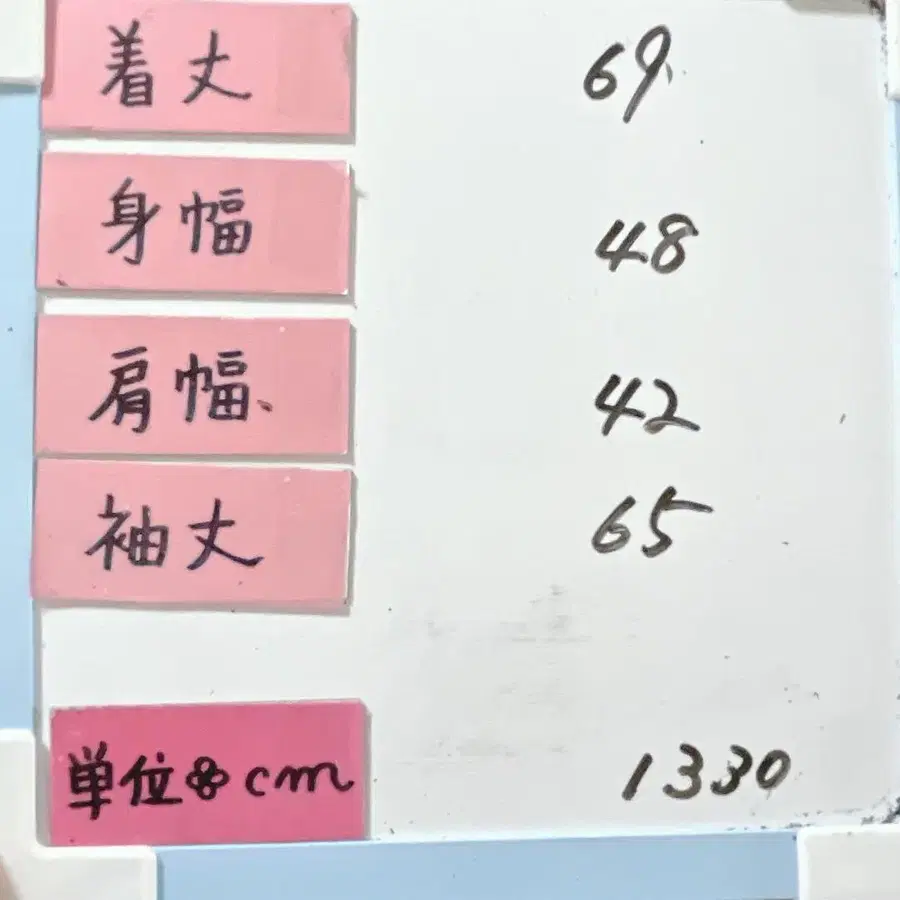 着丈 69
身幅 48
肩幅 42
袖丈 65
単位 cm 1330